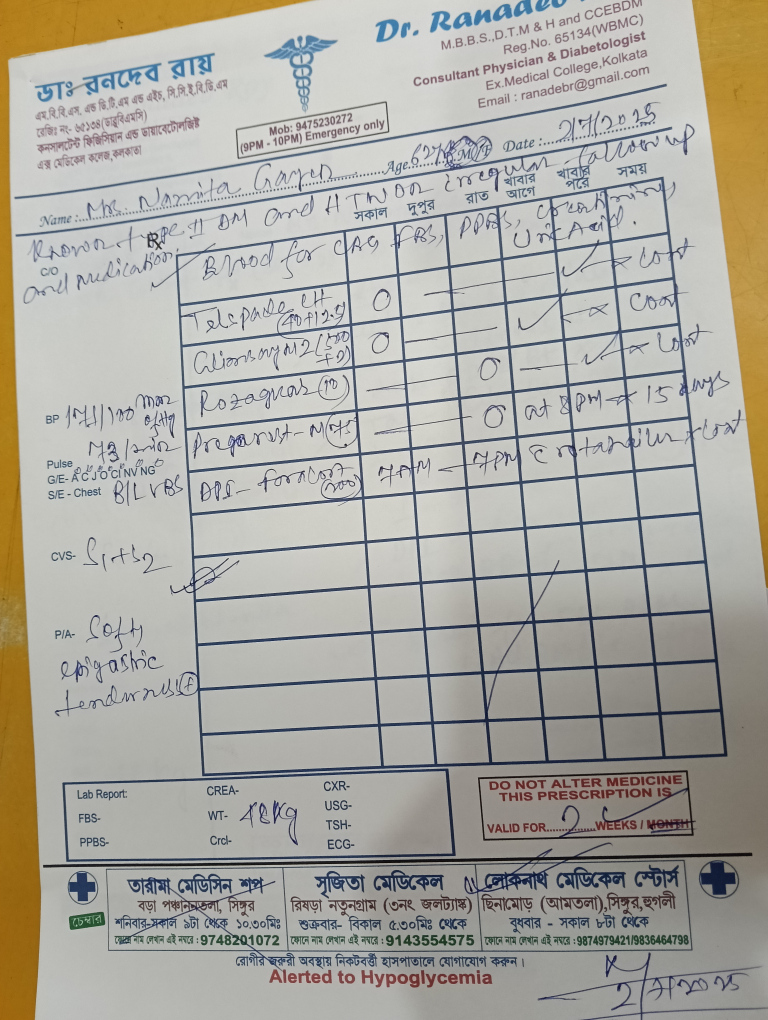 Dr. Ranadeb
M.B.B.S.,D.T.M & H and CCEBDM
Reg.No. 65134(WBMC)
Consultant Physician & Diabetologist
Ex.Medical College,Kolkata
Email : ranadebr@gmail.com
ডাঃ রনদেব রায়
এম.বি.বি.এস, এন্ড ডি.টি.এম এন্ড এইচ, সি.সি.ই.বি.ডি.এম
রেজিঃ নং- ৬৫১৩৪(ডাব্লুবিএমসি)
কনসালটেন্ট ফিজিসিয়ান এন্ড ডায়াবেটোলজিষ্ট
এক্স মেডিকেল কলেজ,কলকাতা
Mob: 9475230272
(9PM - 10PM) Emergency only
Name : Mrs. Namita Gayen Age 62 M/F Date : 2/7/2025
Known type II DM and HTN on irregular follow up
C/O and Medication
Rx
সকাল দুপুর রাত খাবার আগে খাবার পরে সময়
Blood for CBC, FBS, PPBS, Creatinine, Uric Acid.
(40+12.5) O cont
(500+2) O cont
(10) O cont
M(75) O at 8PM 15 days
DPI - Foracort (200) 7AM - 7PM cont
BP 171/100 mm of Hg
Pulse 73/min
G/E- A C J O C I N V N G
S/E - Chest B/L VBS
CVS- S1+S2
P/A- Soft
epigastric
tenderness (+)
Lab Report: CREA- CXR-
FBS- WT- 48Kg USG-
PPBS- Crcl- TSH-
ECG-
DO NOT ALTER MEDICINE
THIS PRESCRIPTION IS
VALID FOR 2 WEEKS / MONTH
চেম্বার
তারামা মেডিসিন শপ
বড়া পঞ্চাননতলা, সিঙ্গুর
শনিবার-সকাল ৯টা থেকে ১০.৩০মিঃ
ফোনে নাম লেখান এই নম্বরে : 9748201072
সৃজিতা মেডিকেল
রিষড়া নতুনগ্রাম (৩নং জলট্যাঙ্ক)
শুক্রবার- বিকাল ৫.৩০মিঃ থেকে
ফোনে নাম লেখান এই নম্বরে : 9143554575
লোকনাথ মেডিকেল স্টোর্স
ছিনামোড় (আমতলা),সিঙ্গুর,হুগলী
বুধবার - সকাল ৮টা থেকে
ফোনে নাম লেখান এই নম্বরে : 9874979421/9836464798
রোগীর জরুরী অবস্থায় নিকটবর্তী হাসপাতালে যোগাযোগ করুন।
Alerted to Hypoglycemia
2/7/2025